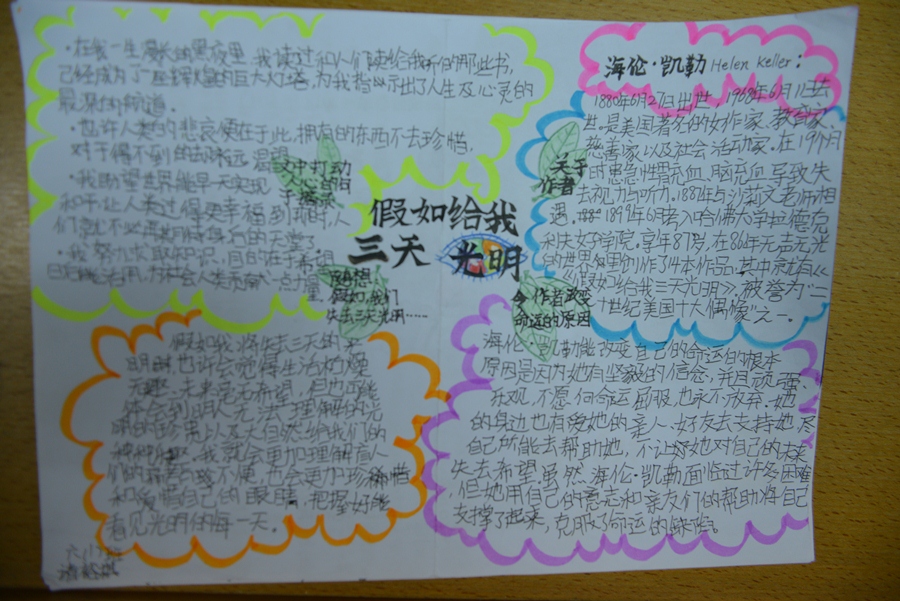 ·在我一生漫长的黑夜里,我读过和人们读给我听的那些书,
已经成为了一座辉煌的巨大灯塔,为我指示出了人生及心灵的
最深的航道。
·也许人类的悲哀便在于此,拥有的东西不去珍惜,
对于得不到的却永远渴望。
·我盼望世界能早一天实现
和平让人类过得更幸福到那时人
们就不必再期待身后的天堂了。
·我努力求取知识,目的在于希望
日后能活用,为社会人类贡献一点力量。
文中打动
海伦·凯勒 Helen Keller:
1880年6月27日出世,1968年6月1日去
世。是美国著名的女作家、教育家、
慈善家以及社会活动家。在19个月
时患急性胃充血、脑充血导致失
去视力与听力。1887年与沙莉文老师相
遇。1899年6月考入哈佛大学拉德克
利夫女子学院。享年87岁,在86年无声无光
的世界里创作了14本作品,其中就有《
《假如给我三天光明》,被誉为"二
十世纪美国十大偶像"之一。
关于
作者
假如给我
三天 光明
假如,我们
失去三天光明……
令作者改变
命运的原因
假如我将失去三天的光
明时,也许会觉得生活好像
无趣,未来毫无希望,但也可能
体会到明人无法理解的光
明的珍贵以及大自然给我们的
种种,我就会更加理解盲人
们的不便,也会更加珍惜
和爱惜自己的眼睛,把握好能
看见光明的每一天。
海伦·凯勒能改变自己的命运的根本
原因是因为她有坚毅的信念,并且顽强、
乐观,不愿向命运屈服,也永不放弃。她
的身边也有爱她的亲人、好友去支持她,尽
自己所能去帮助她,不让她对自己的未来
失去希望。虽然海伦·凯勒面临过许多困难
但她用自己的意志和亲友们的帮助将自己
支撑了起来,克服了命运的缺陷。